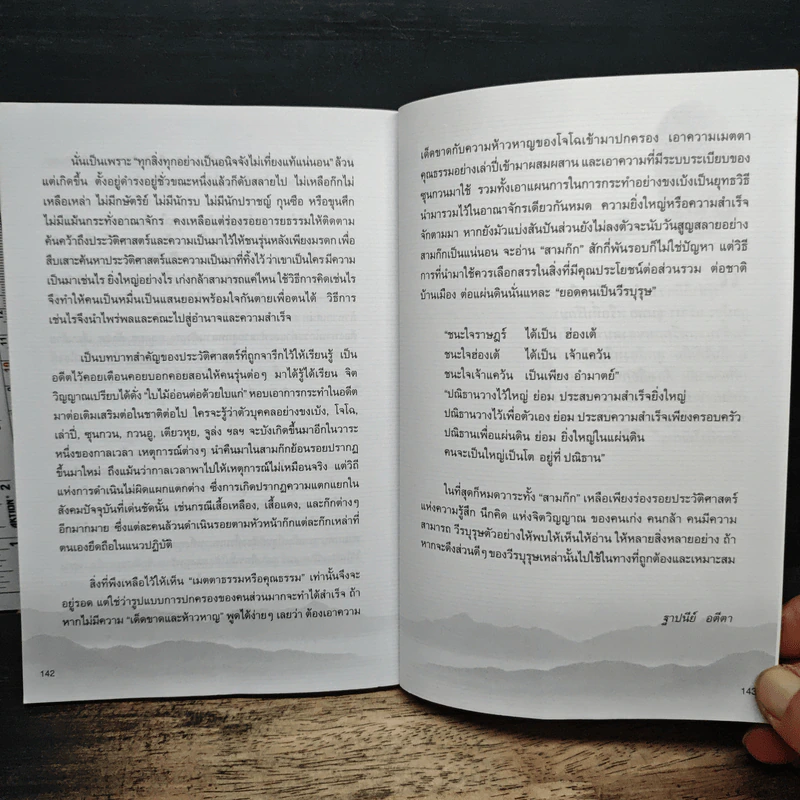 นั่นเป็นเพราะ "ทุกสิ่งทุกอย่างเป็นอนิจจังไม่เที่ยงแท้แน่นอน" ล้วน
แต่เกิดขึ้น ตั้งอยู่ดำรงอยู่ชั่วขณะหนึ่งแล้วก็ดับสลายไป ไม่เหลือก๊กไม่
เหลือเหล่า ไม่มีกษัตริย์ ไม่มีนักรบ ไม่มีนักปราชญ์ กุนซือ หรือขุนศึก
ไม่มีแม้นกระทั่งอาณาจักร คงเหลือแต่ร่องรอยอารยธรรมให้ติดตาม
ค้นคว้าถึงประวัติศาสตร์และความเป็นมาไว้ให้ชนรุ่นหลังเพียงมรดก เพื่อ
สืบเสาะค้นหาประวัติศาสตร์และความเป็นมาที่ทิ้งไว้ว่าเขาเป็นใคร มีความ
เป็นมาเช่นไร ยิ่งใหญ่อย่างไร เก่งกล้าสามารถแค่ไหน ใช้วิธีการคิดเช่นไร
จึงทำให้คนเป็นหมื่นเป็นแสนยอมพร้อมใจกันตายเพื่อตนได้ วิธีการ
เช่นไรจึงนำไพร่พลและคณะไปสู่อำนาจและความสำเร็จ
เป็นบทบาทสำคัญของประวัติศาสตร์ที่ถูกจารึกไว้ให้เรียนรู้ เป็น
อดีตไว้คอยเตือนคอยบอกคอยสอนให้คนรุ่นต่อๆ มาได้รู้ได้เรียน จิต
วิญญาณเปรียบได้ดั่ง "ใบไม้อ่อนต่อด้วยใบแก่" หอบเอาการกระทำในอดีต
มาต่อเติมเสริมต่อในชาติต่อไป ใครจะรู้ว่าตัวบุคคลอย่างขงเบ้ง, โจโฉ,
เล่าปี่, ซุนกวน, กวนอู, เตียวหุย, จูล่ง ฯลฯ จะบังเกิดขึ้นมาอีกในวาระ
หนึ่งของกาลเวลา เหตุการณ์ต่างๆ นำคืนมาในสามก๊กย้อนรอยปรากฏ
ขึ้นมาใหม่ ถึงแม้นว่ากาลเวลาพาไปให้เหตุการณ์ไม่เหมือนจริง แต่วิถี
แห่งการดำเนินไม่ผิดแผกแตกต่าง ซึ่งการเกิดปรากฏความแตกแยกใน
สังคมปัจจุบันที่เด่นชัดนั้น เช่นกรณีเสื้อเหลือง, เสื้อแดง, และก๊กต่างๆ
อีกมากมาย ซึ่งแต่ละคนล้วนดำเนินรอยตามหัวหน้าก๊กแต่ละก๊กเหล่าที่
ตนเองยึดถือในแนวปฏิบัติ
สิ่งที่พึงเหลือไว้ให้เห็น "เมตตาธรรมหรือคุณธรรม" เท่านั้นจึงจะ
อยู่รอด แต่ใช่ว่ารูปแบบการปกครองของคนส่วนมากจะทำได้สำเร็จ ถ้า
หากไม่มีความ "เด็ดขาดและห้าวหาญ" พูดได้ง่ายๆ เลยว่า ต้องเอาความ
142
เด็ดขาดกับความห้าวหาญของโจโฉเข้ามาปกครอง เอาความเมตตา
คุณธรรมอย่างเล่าปี่เข้ามาผสมผสาน และเอาความที่มีระบบระเบียบของ
ซุนกวนมาใช้ รวมทั้งเอาแผนการในการกระทำอย่างขงเบ้งเป็นยุทธวิธี
นำมารวมไว้ในอาณาจักรเดียวกันหมด ความยิ่งใหญ่หรือความสำเร็จ
จักตามมา หากยังมัวแบ่งสันปันส่วนยังไม่ลงตัวจะนับวันสูญสลายอย่าง
สามก๊กเป็นแน่นอน จะอ่าน "สามก๊ก" สักกี่พันรอบก็ไม่ใช่ปัญหา แต่วิธี
การที่นำมาใช้ควรเลือกสรรในสิ่งที่มีคุณประโยชน์ต่อส่วนรวม ต่อชาติ
บ้านเมือง ต่อแผ่นดินนั่นแหละ "ยอดคนเป็นวีรบุรุษ"
"ชนะใจราษฎร์ ได้เป็น ฮ่องเต้
ชนะใจฮ่องเต้ ได้เป็น เจ้าแคว้น
ชนะใจเจ้าแคว้น เป็นเพียง อำมาตย์"
"ปณิธานวางไว้ใหญ่ ย่อม ประสบความสำเร็จยิ่งใหญ่
ปณิธานวางไว้เพื่อตัวเอง ย่อม ประสบความสำเร็จเพียงครอบครัว
ปณิธานเพื่อแผ่นดิน ย่อม ยิ่งใหญ่ในแผ่นดิน
คนจะเป็นใหญ่เป็นโต อยู่ที่ ปณิธาน"
ในที่สุดก็หมดวาระทั้ง "สามก๊ก" เหลือเพียงร่องรอยประวัติศาสตร์
แห่งความรู้สึก นึกคิด แห่งจิตวิญญาณ ของคนเก่ง คนกล้า คนมีความ
สามารถ วีรบุรุษตัวอย่างให้พบให้เห็นให้อ่าน ให้หลายสิ่งหลายอย่าง ถ้า
หากจะดึงส่วนดีๆ ของวีรบุรุษเหล่านั้นไปใช้ในทางที่ถูกต้องและเหมาะสม
ฐาปนีย์ อดีตา
143